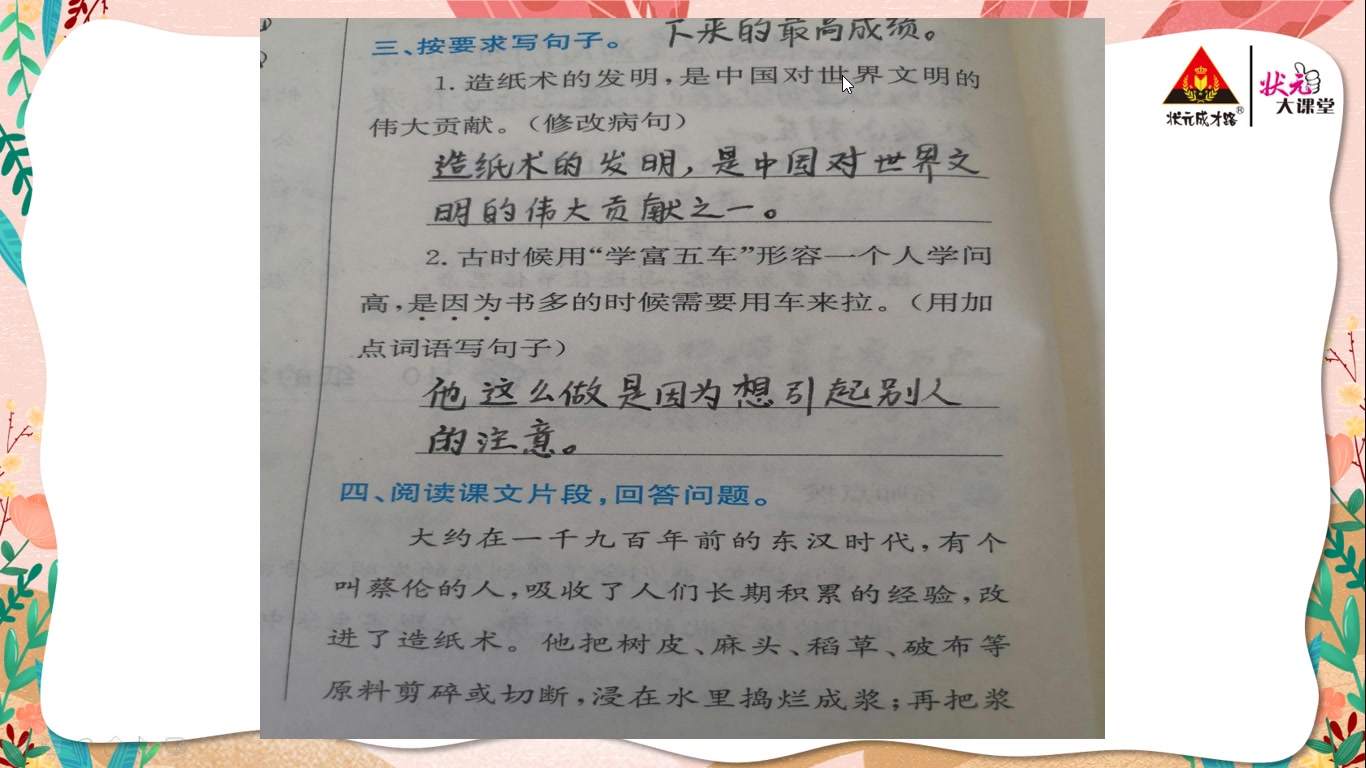 下来的最高成须。
三、按要求写句子。
1. 造纸术的发明，是中国对世界文明的
伟大贡献。（修改病句）
造纸术的发明，是中国对世界文
明的伟大贡献之一。
2. 古时候用“学富五车”形容一个人学问
高，是因为书多的时候需要用车来拉。（用加
点词语写句子）
他这么做是因为想引起别人
的注意。
四、阅读课文片段，回答问题。
大约在一千九百年前的东汉时代，有个
叫蔡伦的人，吸收了人们长期积累的经验，改
进了造纸术。他把树皮、麻头、稻草、破布等
原料剪碎或切断，浸在水里捣烂成浆；再把浆
状元成才路®
状元
大课堂